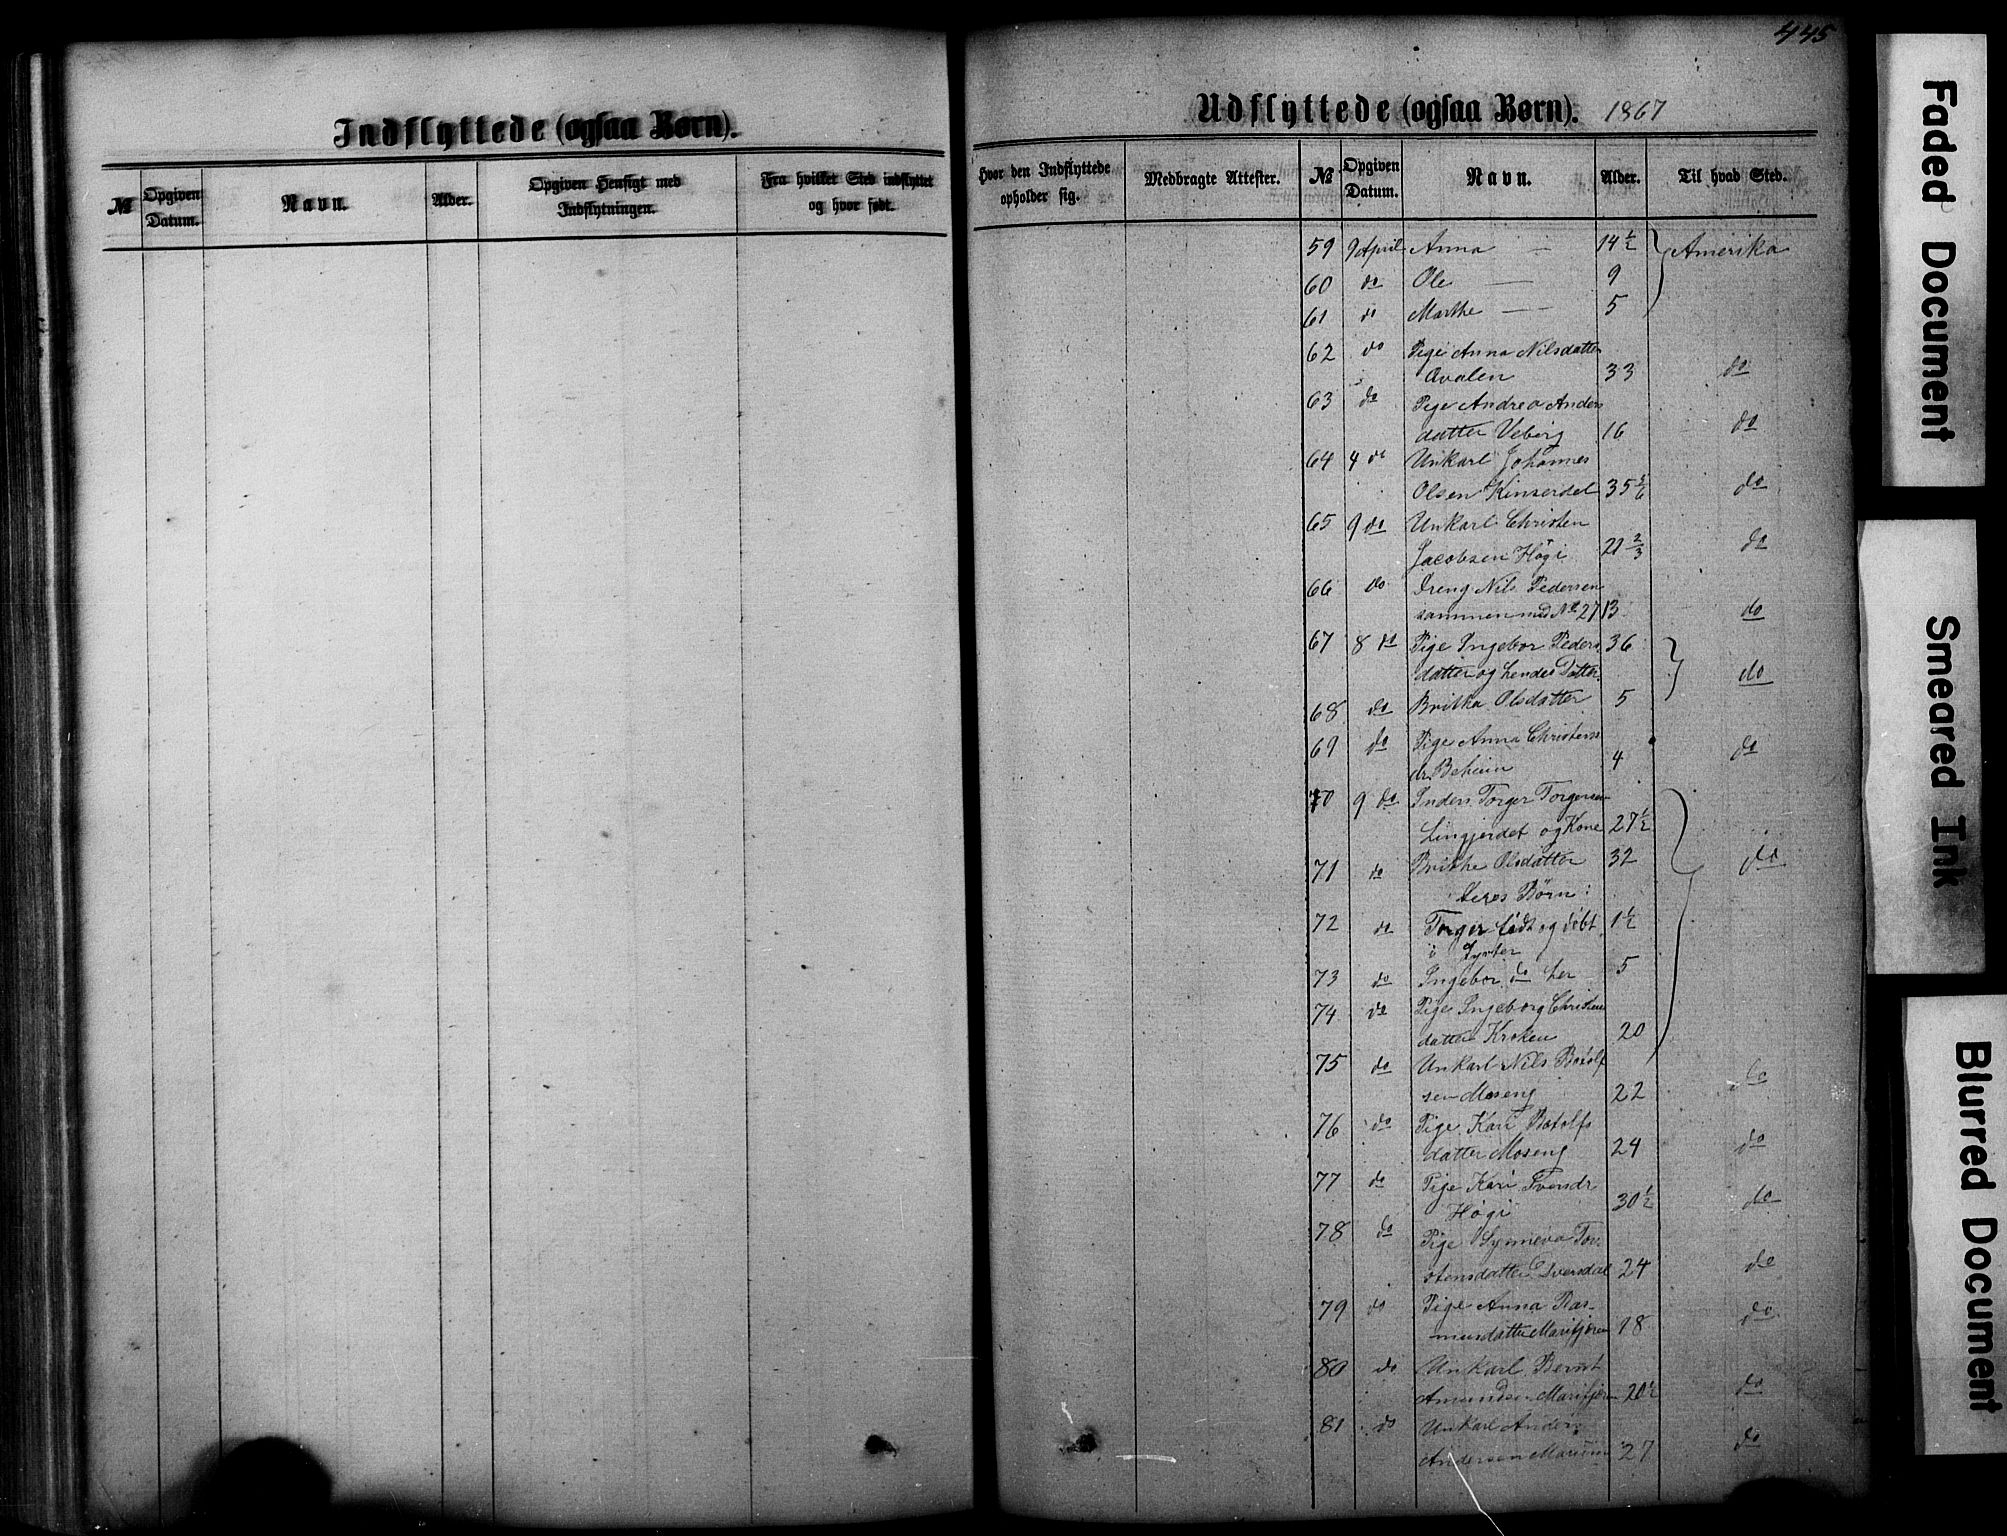 445
Indflyttede (ogsaa Børn).
№
Opgiven Datum.
Navn.
Alder.
Opgiven Hensigt med Indflytningen.
Fra hvilket Sted indflyttet og hvor født.
Udflyttede (ogsaa Børn). 1867
Hvor den Indflyttede opholder sig.
Medbragte Attester.
№
Opgiven Datum.
Navn.
Alder.
Til hvad Sted.
59 9 April Anna — 14 1/2 Amerika
60 do Ole — 9
61 do Marthe — 5
62 do Pige Anna Nilsdatter
Qvalen 33 do
63 do Pige Andrea Anders
datter Veberg 16 do
64 4 do Unkarl Johannes
Olsen Kinserdal 35 5/6 do
65 9 do Unkarl Christen
Jacobsen Høgi 21 2/3 do
66 do Dreng Nils Pedersen
sammen med No 27 13 do
67 8 do Pige Ingebor Peders 36
datter og hendes Datter do
68 do Britha Olsdatter 5
69 do Pige Anna Christens
dr. Beheim 4 do
70 9 do Inders. Torger Torgersen
Lingjerdet og Kone 27 1/2
71 do Brithe Olsdatter 32 do
deres Børn:
72 do Torger født og døbt 1 1/2
i Lyster
73 do Ingebor do her 5
74 do Pige Ingeborg Christens
datter Kroken 20
75 do Unkarl Nils Botolf
sen Moseng 22 do
76 do Pige Kari Botolfs
datter Moseng 24 do
77 do Pige Kari Iversdr
Høgi 30 1/2 do
78 do Pige Synneva Tor
stensdatter Fversdal 24 do
79 do Pige Anna Ras-
musdatter Marifjøren 18 do
80 do Unkarl Bernt
Amundsen Marifjøren 20 1/2 do
81 do Unkarl Anders
Andersen 27 do
Faded Document
Smeared Ink
Blurred Document